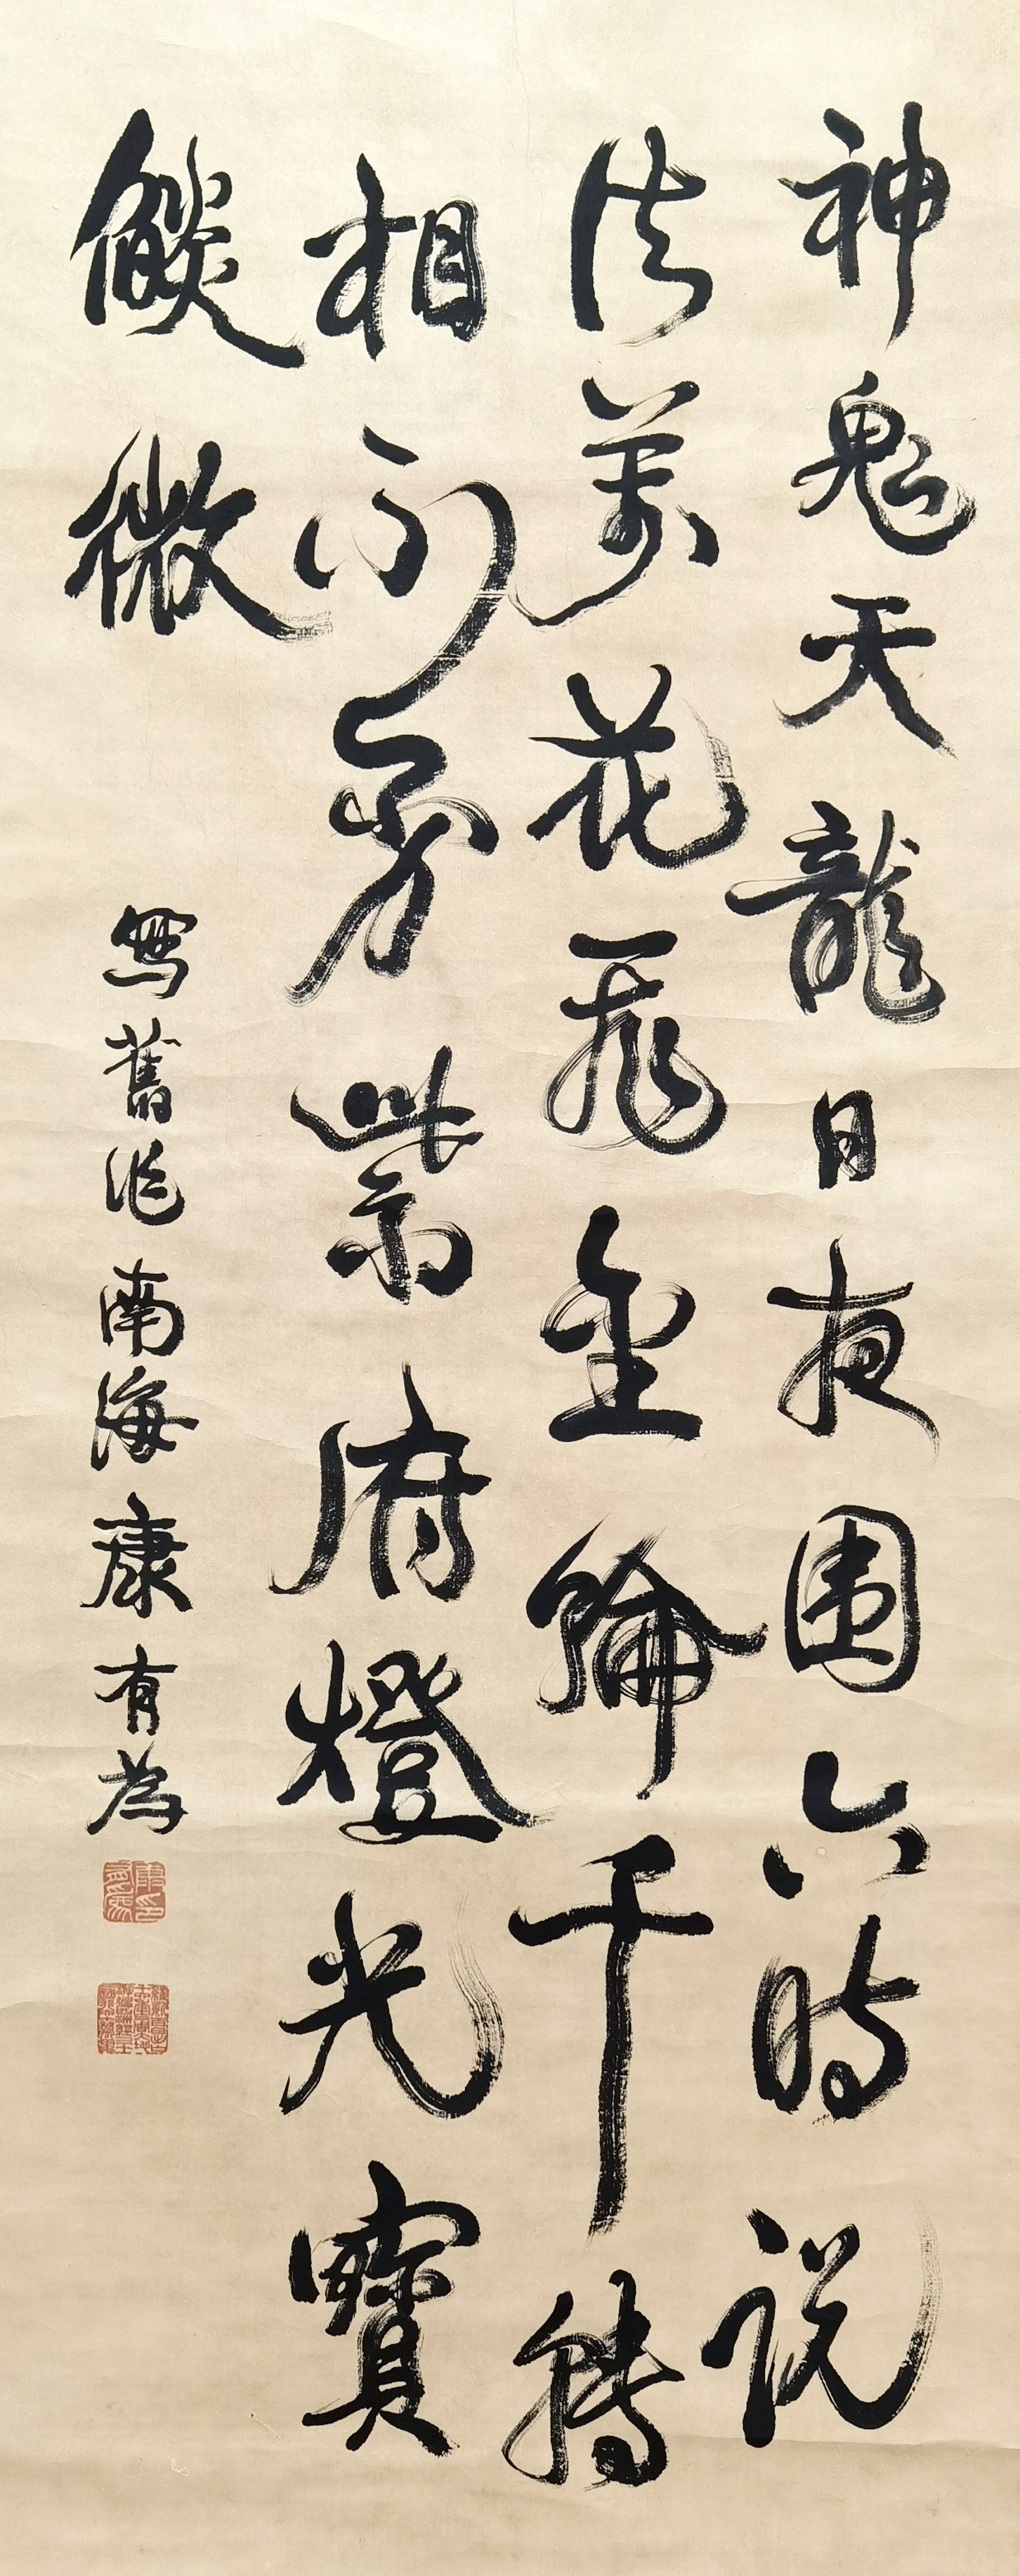 神鬼天龍日夜围六時説
法萬花飛金輪千轉
相 紫府燈光寶
燄微
寫舊作 南海康有為
康有為印